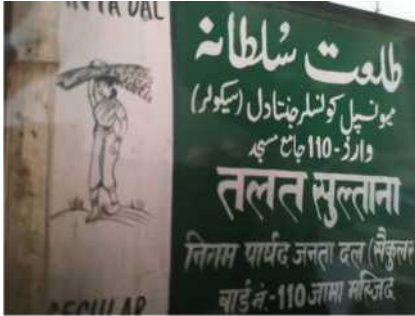 DAL
طلعت سُلطانہ
میونسپل کونسلر جنتادل (سیکولر)
وارڈ-110 جامع مسجد
तलत सुल्ताना
निगम पार्षद जनता दल (सैकुलर
वार्ड नं.-110 जामा मस्जिद